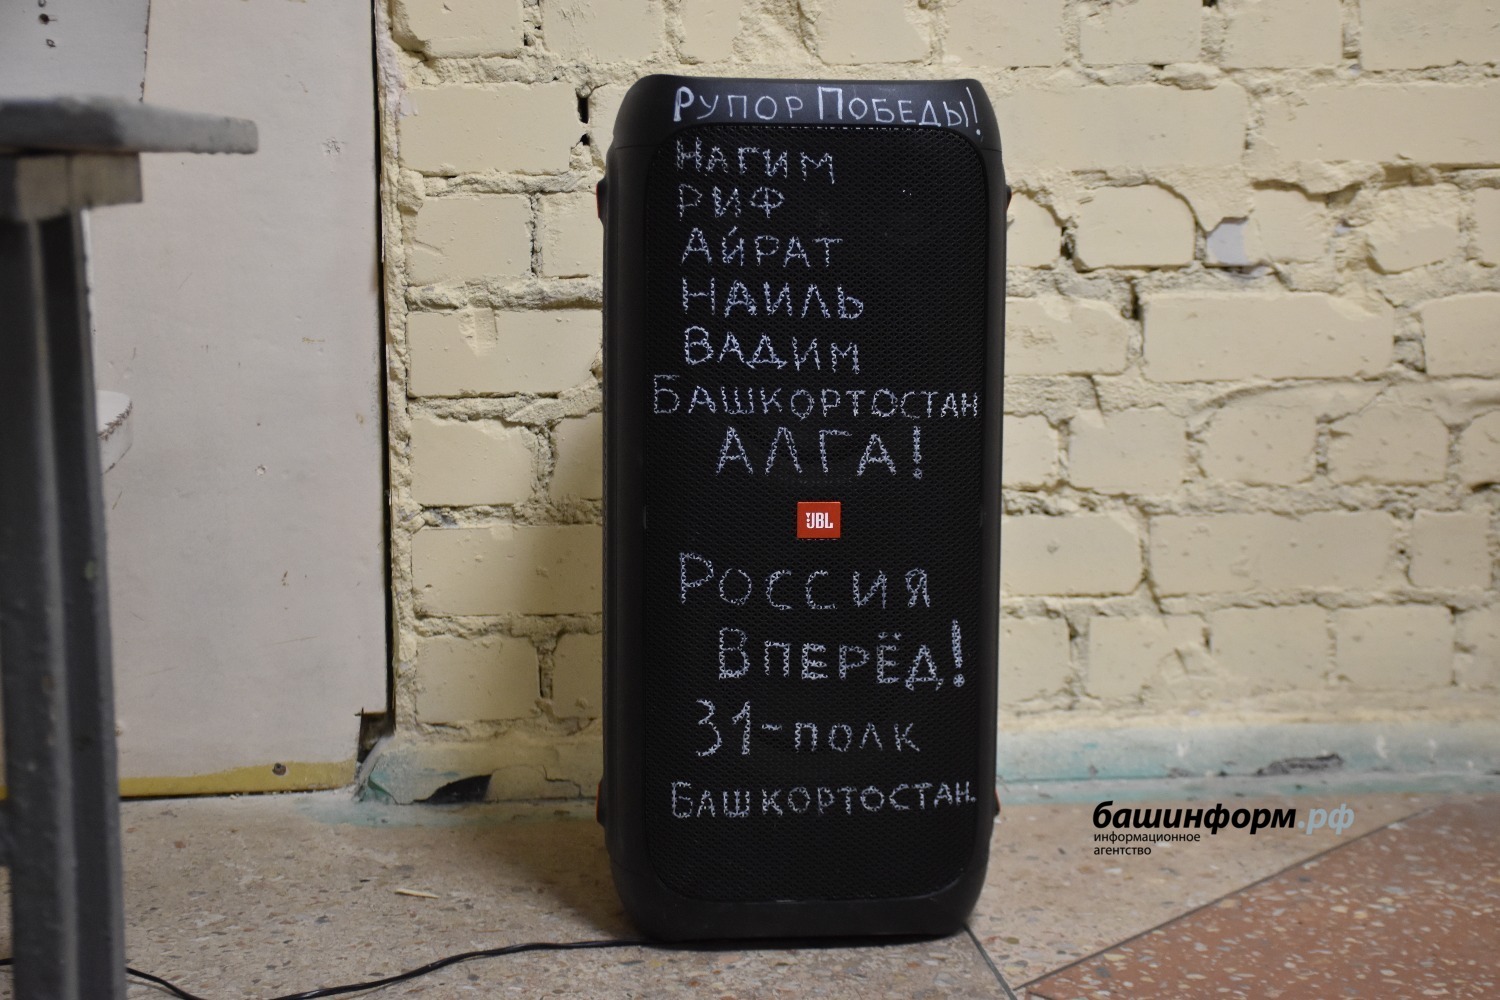 Рупор Победы!
Нагим
Риф
Айрат
Наиль
Вадим
Башкортостан
Алга!
JBL
Россия
Вперёд!
31-полк
Башкортостан.
башинформ.рф
информационное
агентство